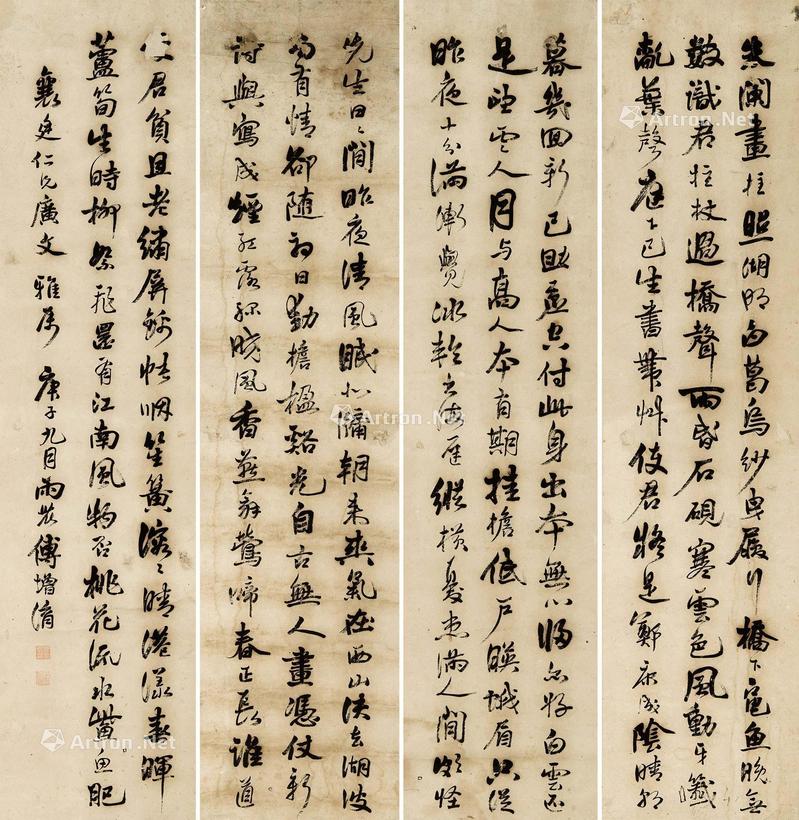 朱闌畫柱照湖明白葛烏紗曳履行橋下龜魚晚無
數識君拄杖過橋聲雨昏石硯寒雲色風動牙籤
亂葉聲庭下已生書帶艸使君將是鄭康成陰晴朝
暮幾回新已虛空付此身出本無心歸亦好白雲還
是望雲人月与高人本有期挂檐低戶映蛾眉只從
昨夜十分滿漸覺冰輪出海遲縱橫憂患滿人間頗怪
先生日日閒昨夜清風眠北牖朝來爽氣在西山決去湖波
尚有情卻隨初日動檐楹谿光自古無人畫憑仗新
詩與寫成煙紅露綠曉風香燕舞鶯啼春正長誰道
使君貧且老繡屏錦帳咽笙簧溶溶晴港漾春暉
蘆筍生時柳絮飛還有江南風物否桃花流水鮆魚肥
襄廷仁兄廣文雅屬 庚子九月雨農傅增淯
Artron.Net
Artron.Net
Artron.Net
Artron.Net
Artron.Net